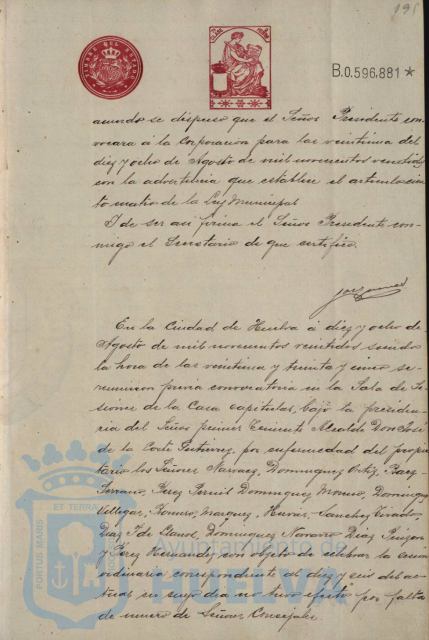 195
TIMBRE DEL ESTADO
B.0.596.881 *
acuerdo se dispuso que el Señor Presidente con-
vocara á la corporacion para las veintiuna del
diez y ocho de Agosto de mil novecientos veintidos,
con la advertencia que establece el articulo cien-
to cuatro de la Ley Municipal
Y de ser asi firma el Señor Presidente con-
migo el Secretario de que certifico.
En la Ciudad de Huelva á diez y ocho de
Agosto de mil novecientos veintidos siendo
la hora de las veintiuna y treinta y cinco se
reunieron previa convocatoria en la Sala de Se-
siones de la Casa capitular, bajo la presiden-
cia del Señor primer Teniente Alcalde Don José
de la Corte Gutierrez, por enfermedad del propie-
tario los Señores Narvaez, Dominguez Ortiz, Baez
Serrano, Perez Dominguez Moreno, Dominguez
Villegas, Romero, Marquez, Hervás, Sanchez Tirado,
Diaz Dominguez Navarro Diaz Pinzon
y Perez Hernandez con objeto de celebrar la sesion
ordinaria correspondiente al diez y seis del ac-
tual, en cuyo dia no tuvo efecto por falta
de numero de Señores Concejales
PORTUS MARIS ET TERRAE
Ayuntamiento de
HUELVA